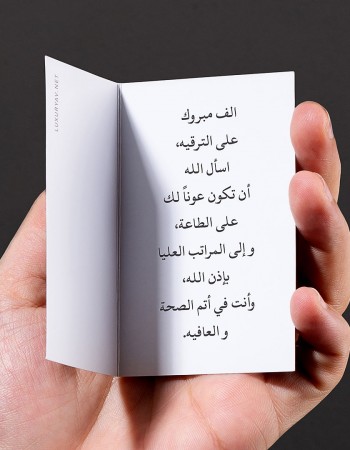 الف مبروك
على الترقيه،
اسأل الله
أن تكون عوناً لك
على الطاعة،
و إلى المراتب العليا
بإذن الله،
وأنت في أتم الصحة
و العافيه.